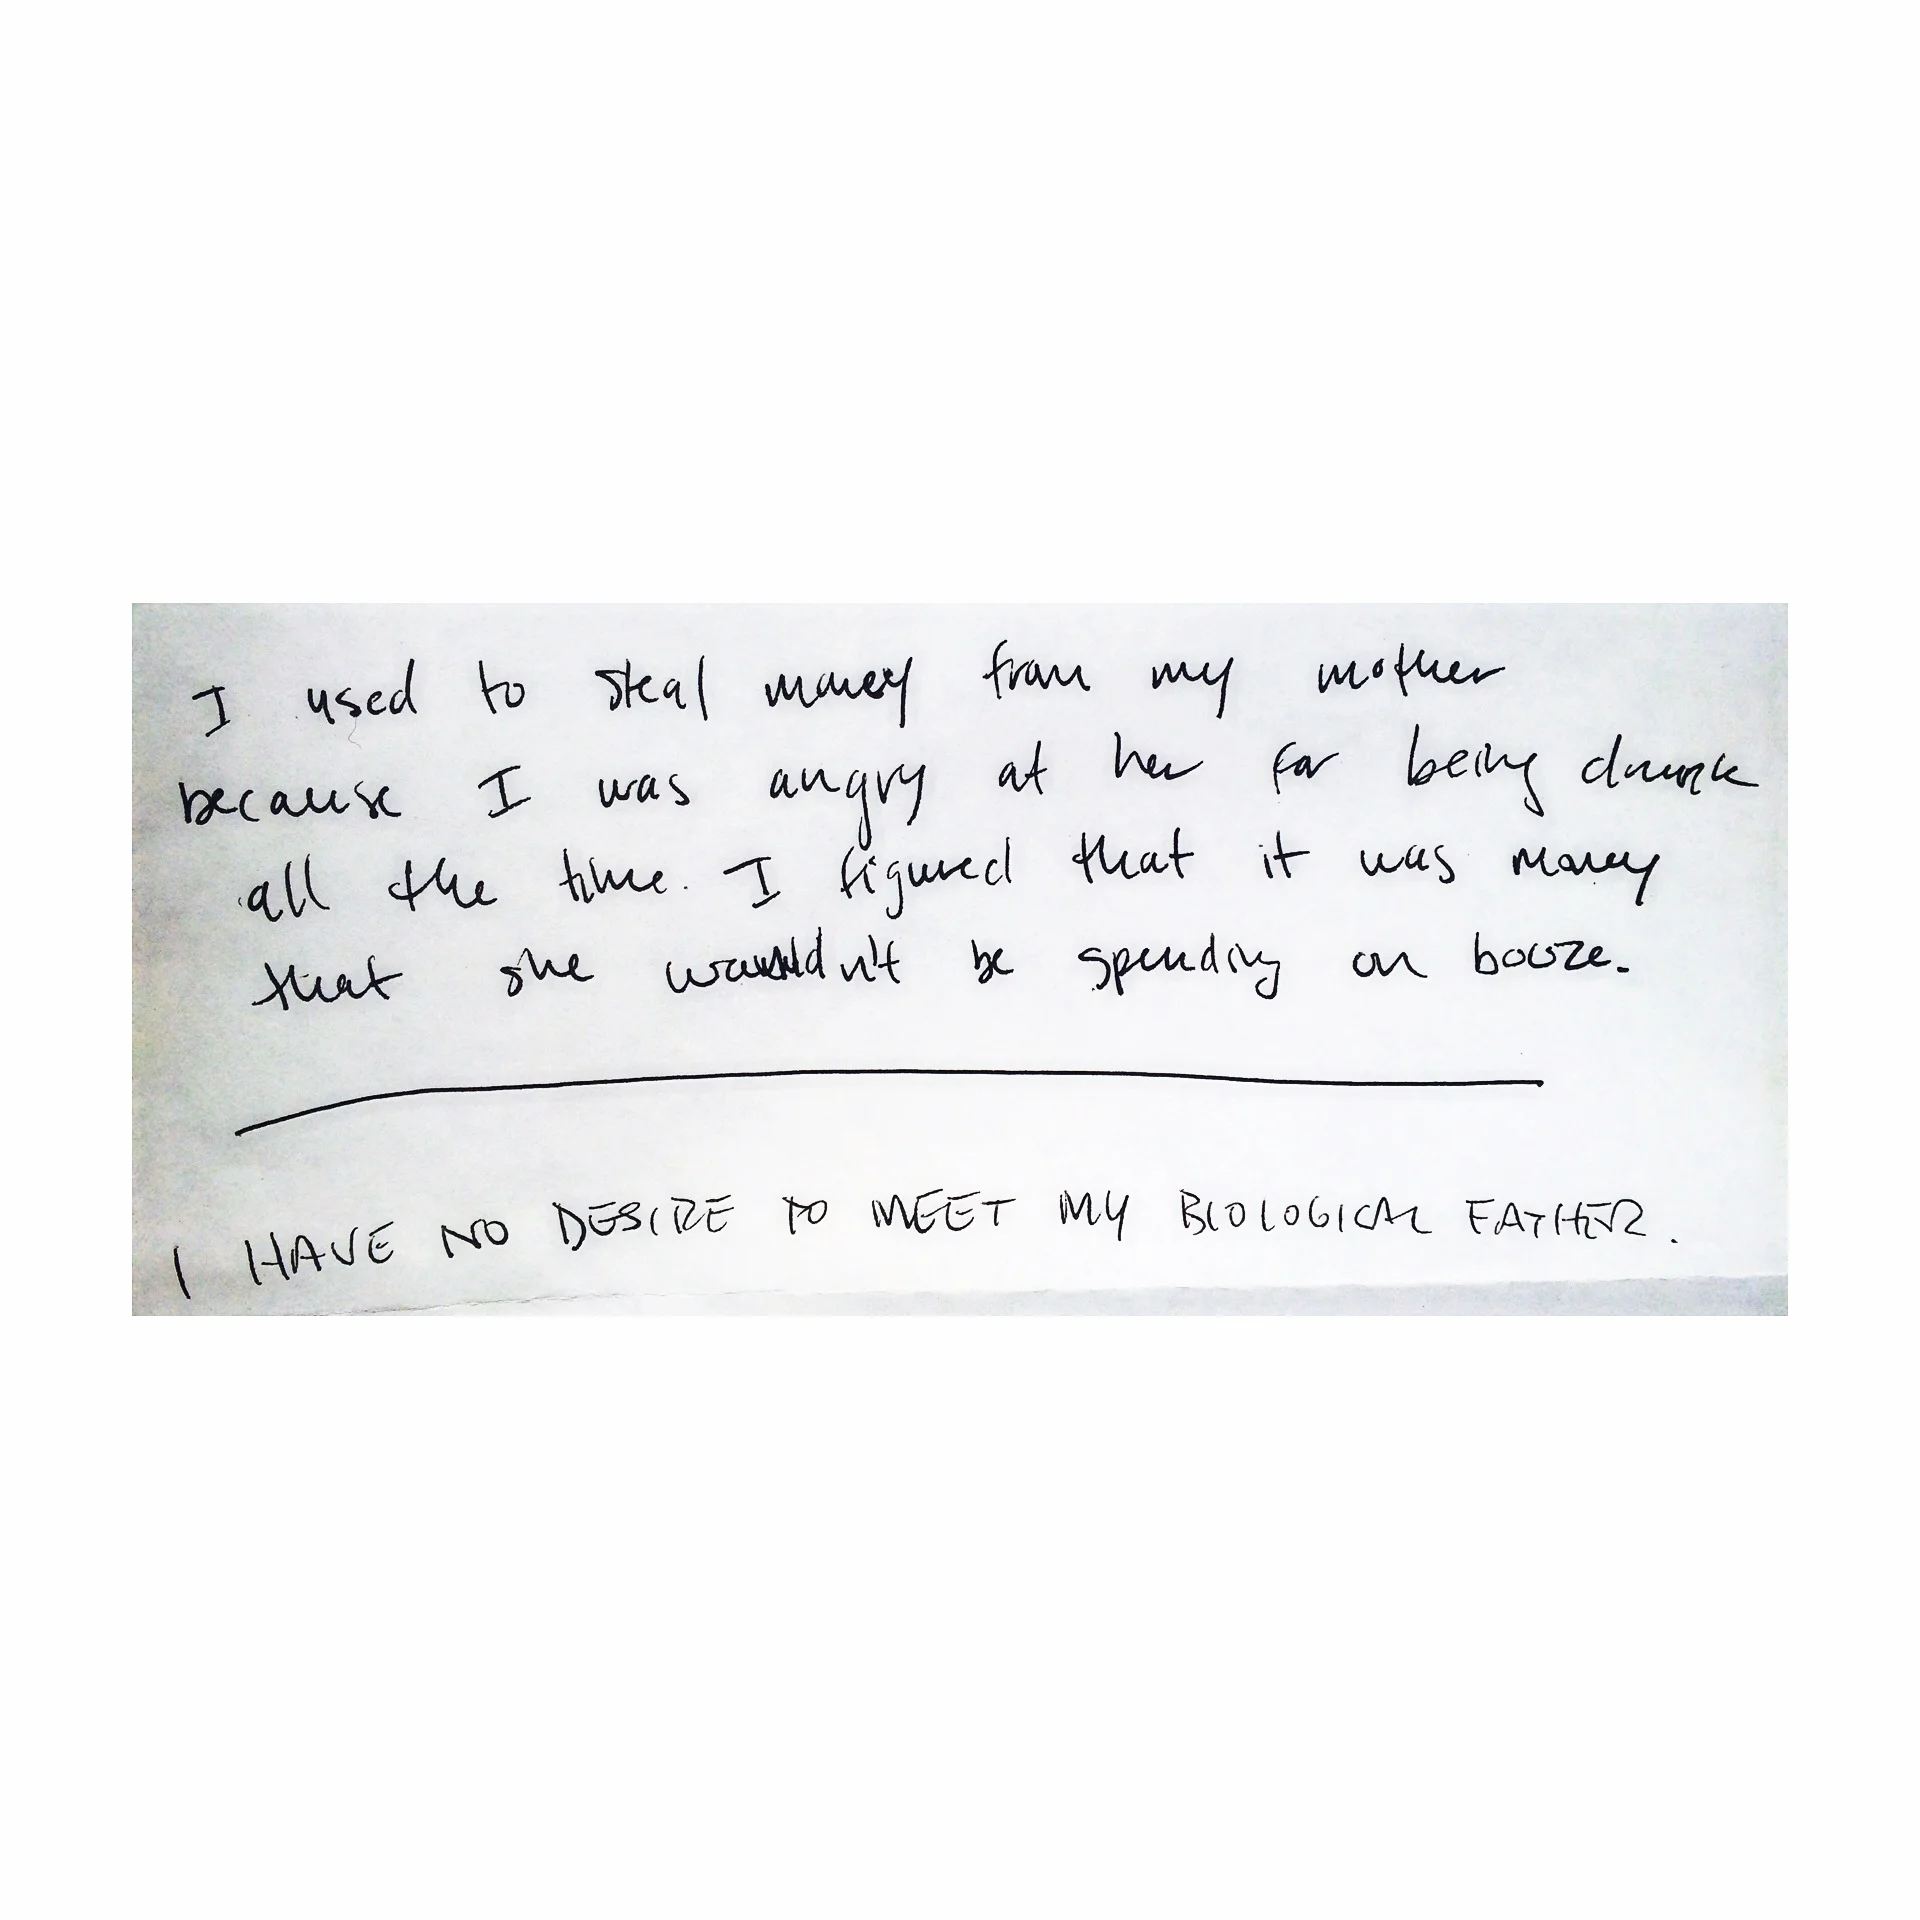 I used to steal money from my mother
because I was angry at her for being drunk
all the time. I figured that it was money
that she wouldn't be spending on booze.
I HAVE NO DESIRE TO MEET MY BIOLOGICAL FATHER.